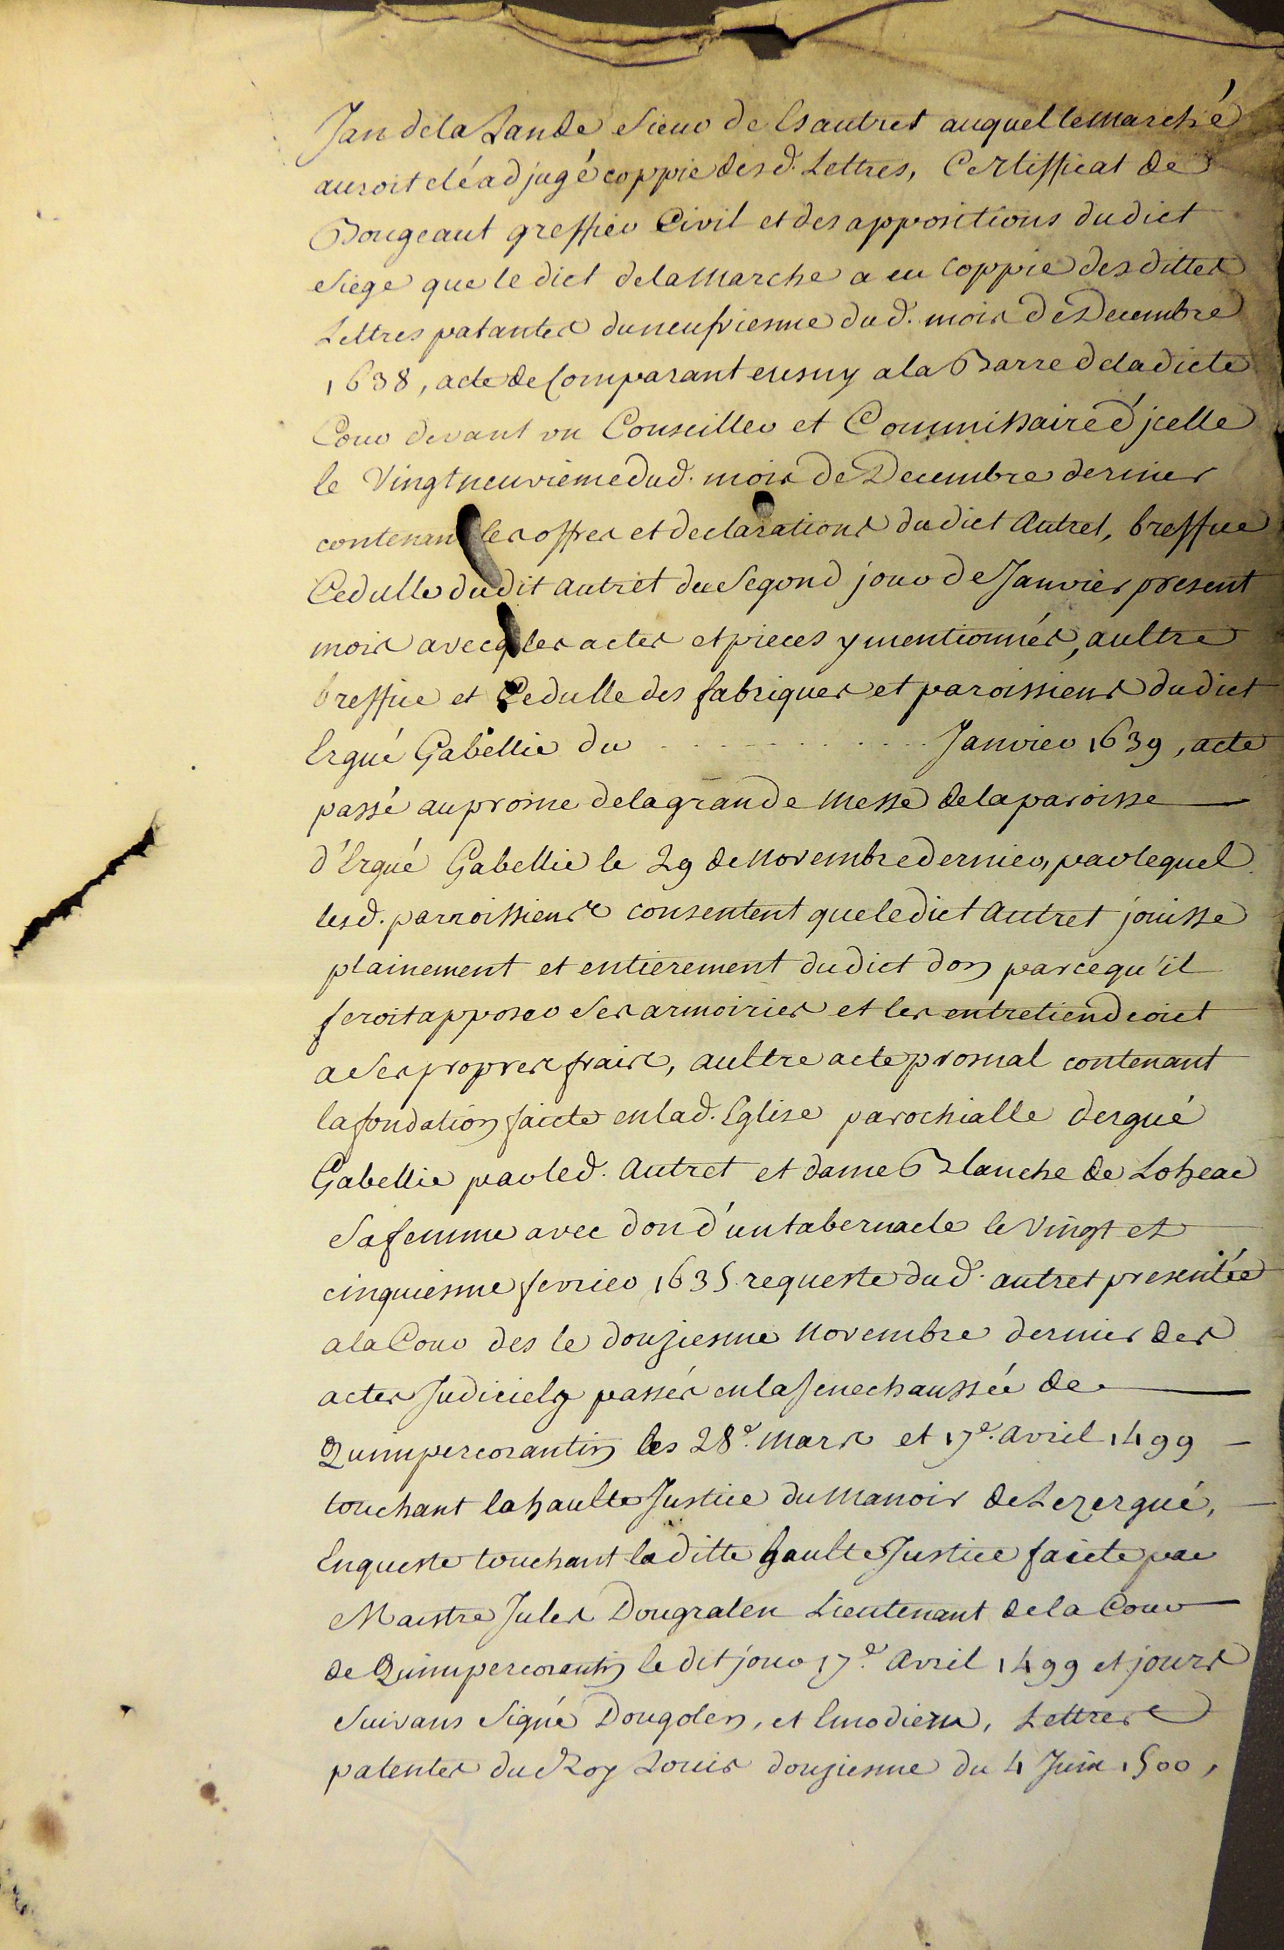 Jan de la Lande Sieur de Esautret auquel le marché
auroit eté adjugé coppie desd. Lettres, Certifficat de
Bougeaut greffier Civil et des appositions dudict
Siege que le dict de la Marche a eu coppie des dittes
Lettres patantes du neufviesme dud. mois de Decembre
1638, acte de Comparant a la Barre de la dicte
Cour devant un Conseiller et Commissaire d'jcelle
le Vingt neuvieme dud. mois de Decembre dernier
contenant les offres et declarations dudict Autret, breffue
Cedulle dudit Autret du Segond jour de Janvier present
mois avecq les actes et pieces y mentionnés, aultre
breffue et Cedulle des fabriques et paroissiens dudict
Ergué Gabellic du . . . . . . . . . . . . Janvier 1639, acte
passé au prosne de la grande Messe de la paroisse
d'Ergué Gabellic le 29 de Novembre dernier, par lequel
lesd. parroissiens consentent que le dict Autret jouisse
plainement et entierement dudict don parce qu'il
feroit apposer Ses armoiries et les entretiendroict
a Ses propres frais, aultre acte prosnal contenant
la fondation faicte en lad. Eglise parochialle dergué
Gabellic par led. Autret et dame Blanche de Loheac
Sa femme avec don d'un tabernacle le Vingt et
cinquiesme fevrier 1635. requeste dud. autret presentée
a la Cour des le douziesme Novembre dernier des
actes Judiciels passés en la Senechaussée de
Quimpercorantin les 28e. Mars et 17e. Avril 1499
touchant la haulte Justice du Manoir de Lezergué,
Enqueste touchant la ditte haulte Justice faicte par
Maistre Jules Dougralen Lieutenant de la Cour
de Quimpercorantin le dit jour 17e. Avril 1499 et jours
Suivans Signé Dougolen, et , Lettres
patentes du Roy Louis douziesme du 4 Juin 1500,